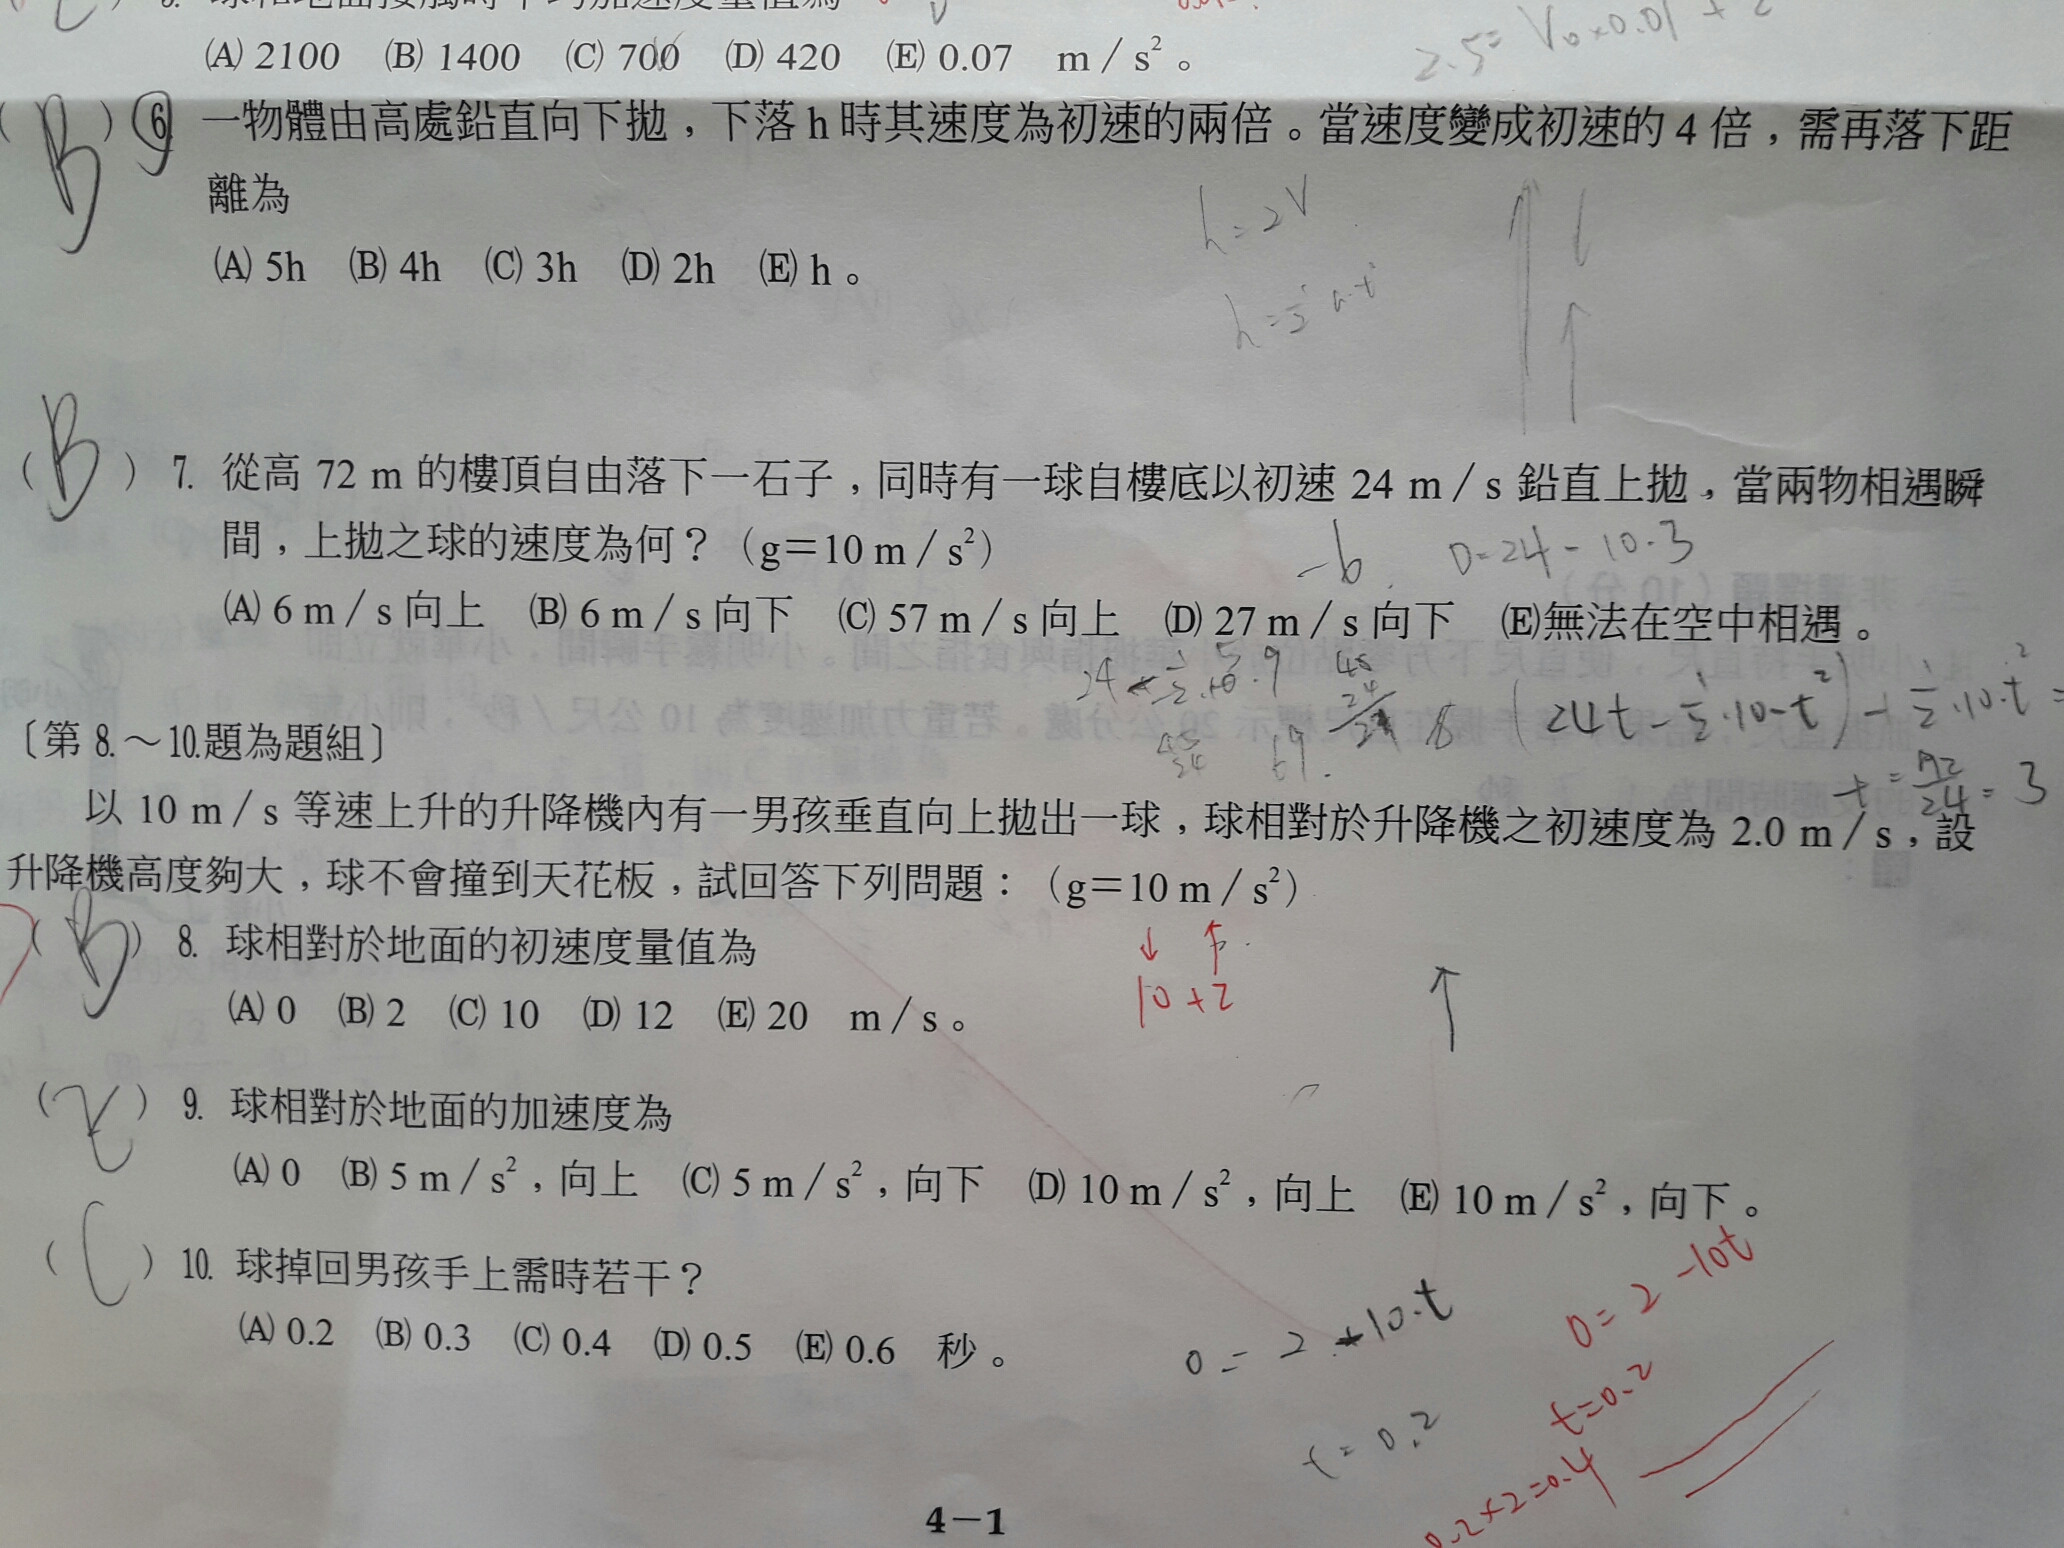 (A) 2100 (B) 1400 (C) 700 (D) 420 (E) 0.07 m/s²。
2.5 = V₀×0.01 +
(B) 6. 一物體由高處鉛直向下拋,下落 h 時其速度為初速的兩倍。當速度變成初速的 4 倍,需再落下距
離為
h = 2V
(A) 5h (B) 4h (C) 3h (D) 2h (E) h。
h = ½ a·t²
(B) 7. 從高 72 m 的樓頂自由落下一石子,同時有一球自樓底以初速 24 m/s 鉛直上拋,當兩物相遇瞬
間,上拋之球的速度為何?(g=10 m/s²)
-6. 0=24-10·3
(A) 6 m/s 向上 (B) 6 m/s 向下 (C) 57 m/s 向上 (D) 27 m/s 向下 (E)無法在空中相遇。
(24t - ½·10·t²) + ½·10·t² =
t = 72/24 = 3
〔第 8.~10.題為題組〕
以 10 m/s 等速上升的升降機內有一男孩垂直向上拋出一球,球相對於升降機之初速度為 2.0 m/s,設
升降機高度夠大,球不會撞到天花板,試回答下列問題:(g=10 m/s²)
(B) 8. 球相對於地面的初速度量值為
10+2
(A) 0 (B) 2 (C) 10 (D) 12 (E) 20 m/s。
( ) 9. 球相對於地面的加速度為
(A) 0 (B) 5 m/s²,向上 (C) 5 m/s²,向下 (D) 10 m/s²,向上 (E) 10 m/s²,向下。
(C) 10. 球掉回男孩手上需時若干?
(A) 0.2 (B) 0.3 (C) 0.4 (D) 0.5 (E) 0.6 秒。
0=2-10·t
t=0.2
0=2-10t
t=0.2
0.2×2=0.4
4-1